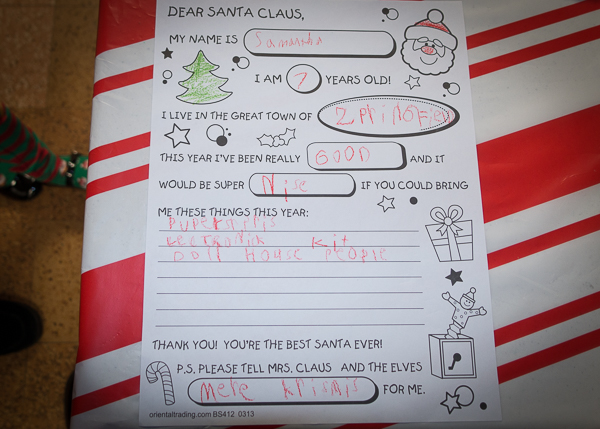 DEAR SANTA CLAUS,
MY NAME IS Samanta
I AM 7 YEARS OLD!
I LIVE IN THE GREAT TOWN OF
THIS YEAR I'VE BEEN REALLY GOOD AND IT
WOULD BE SUPER Nise IF YOU COULD BRING
ME THESE THINGS THIS YEAR:
LECTRONICK Kit
DOll HOUSE PEOPlE
THANK YOU! YOU'RE THE BEST SANTA EVER!
P.S. PLEASE TELL MRS. CLAUS AND THE ELVES
Mere krismis FOR ME.
orientaltrading.com BS412 0313